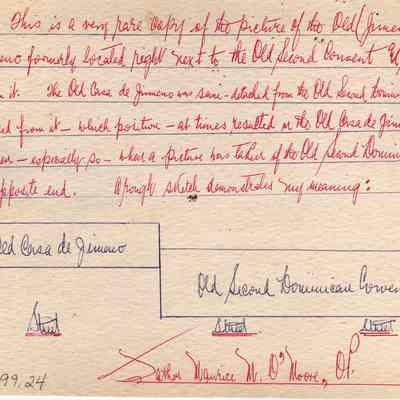 This is a very rare copy of the picture of the Old (Jimen
formerly located right next to the Old Second Convent
it. The Old Casa de Jimeno was semi-detached from the Old Second Domini
ed from it – which position – at times resulted in the Old Casa de Jim
– especially so – when a picture was taken of the Old Second Domin
opposite end. A rough sketch demonstrates my meaning:
Old Casa de Jimeno
Old Second Dominican Conven
Street Street Street
Father Maurice M. O'Moore, O.P.
99.24